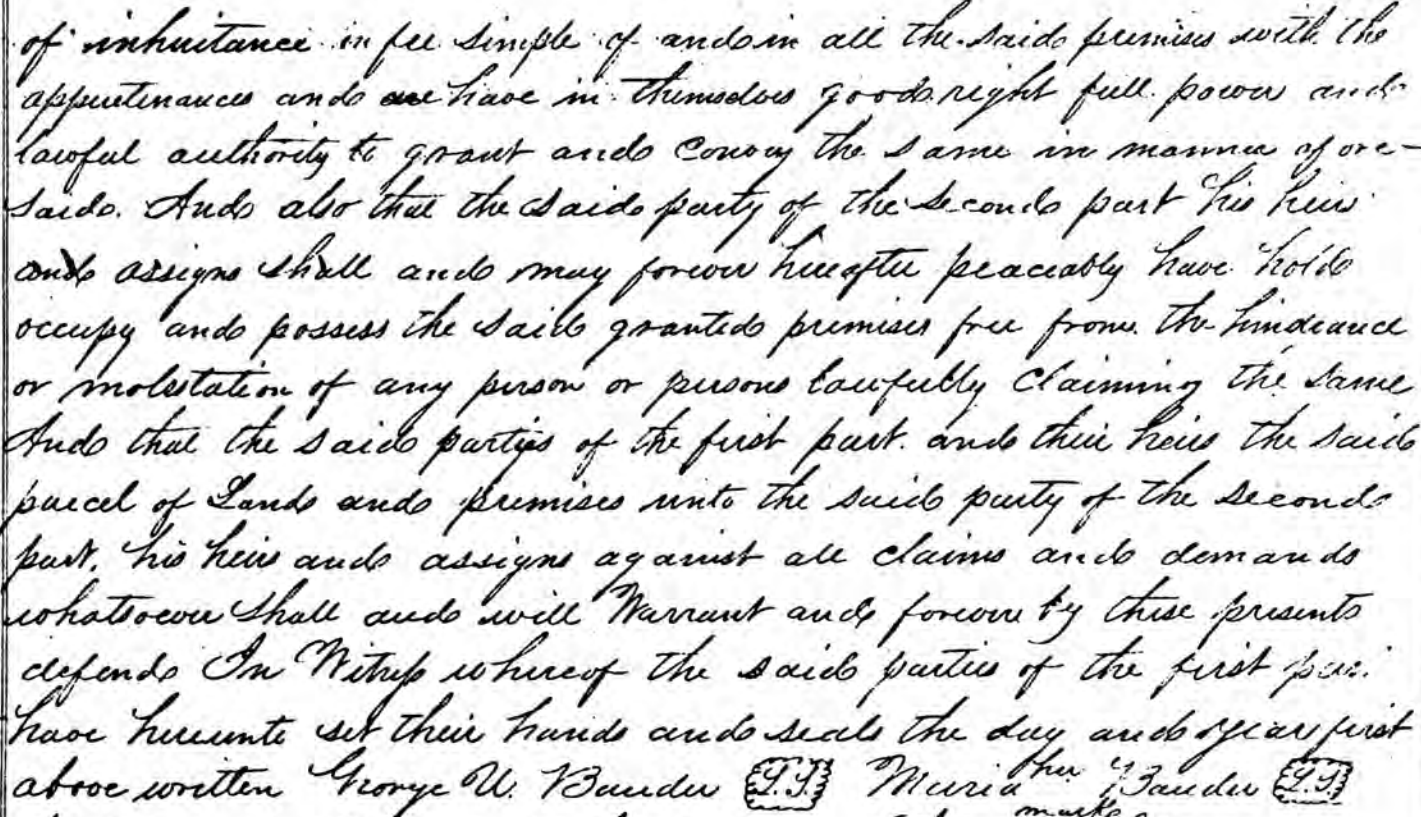 of inheritance in fee simple of and in all the said premises with the
appurtenances and have in themselves good right full power and
lawful authority to grant and convey the same in manner afore-
said. And also that the said party of the second part his heirs
and assigns shall and may forever hereafter peaceably have hold
occupy and possess the said granted premises free from the hindrance
or molestation of any person or persons lawfully claiming the same
And that the said parties of the first part. and their heirs the said
parcel of Land and premises unto the said party of the second
part, his heirs and assigns against all claims and demands
whatsoever shall and will Warrant and forever by these presents
defend In Witness whereof the said parties of the first part
have hereunto set their hands and seals the day and year first
above written George W. Bauder Maria her Bauder
mark